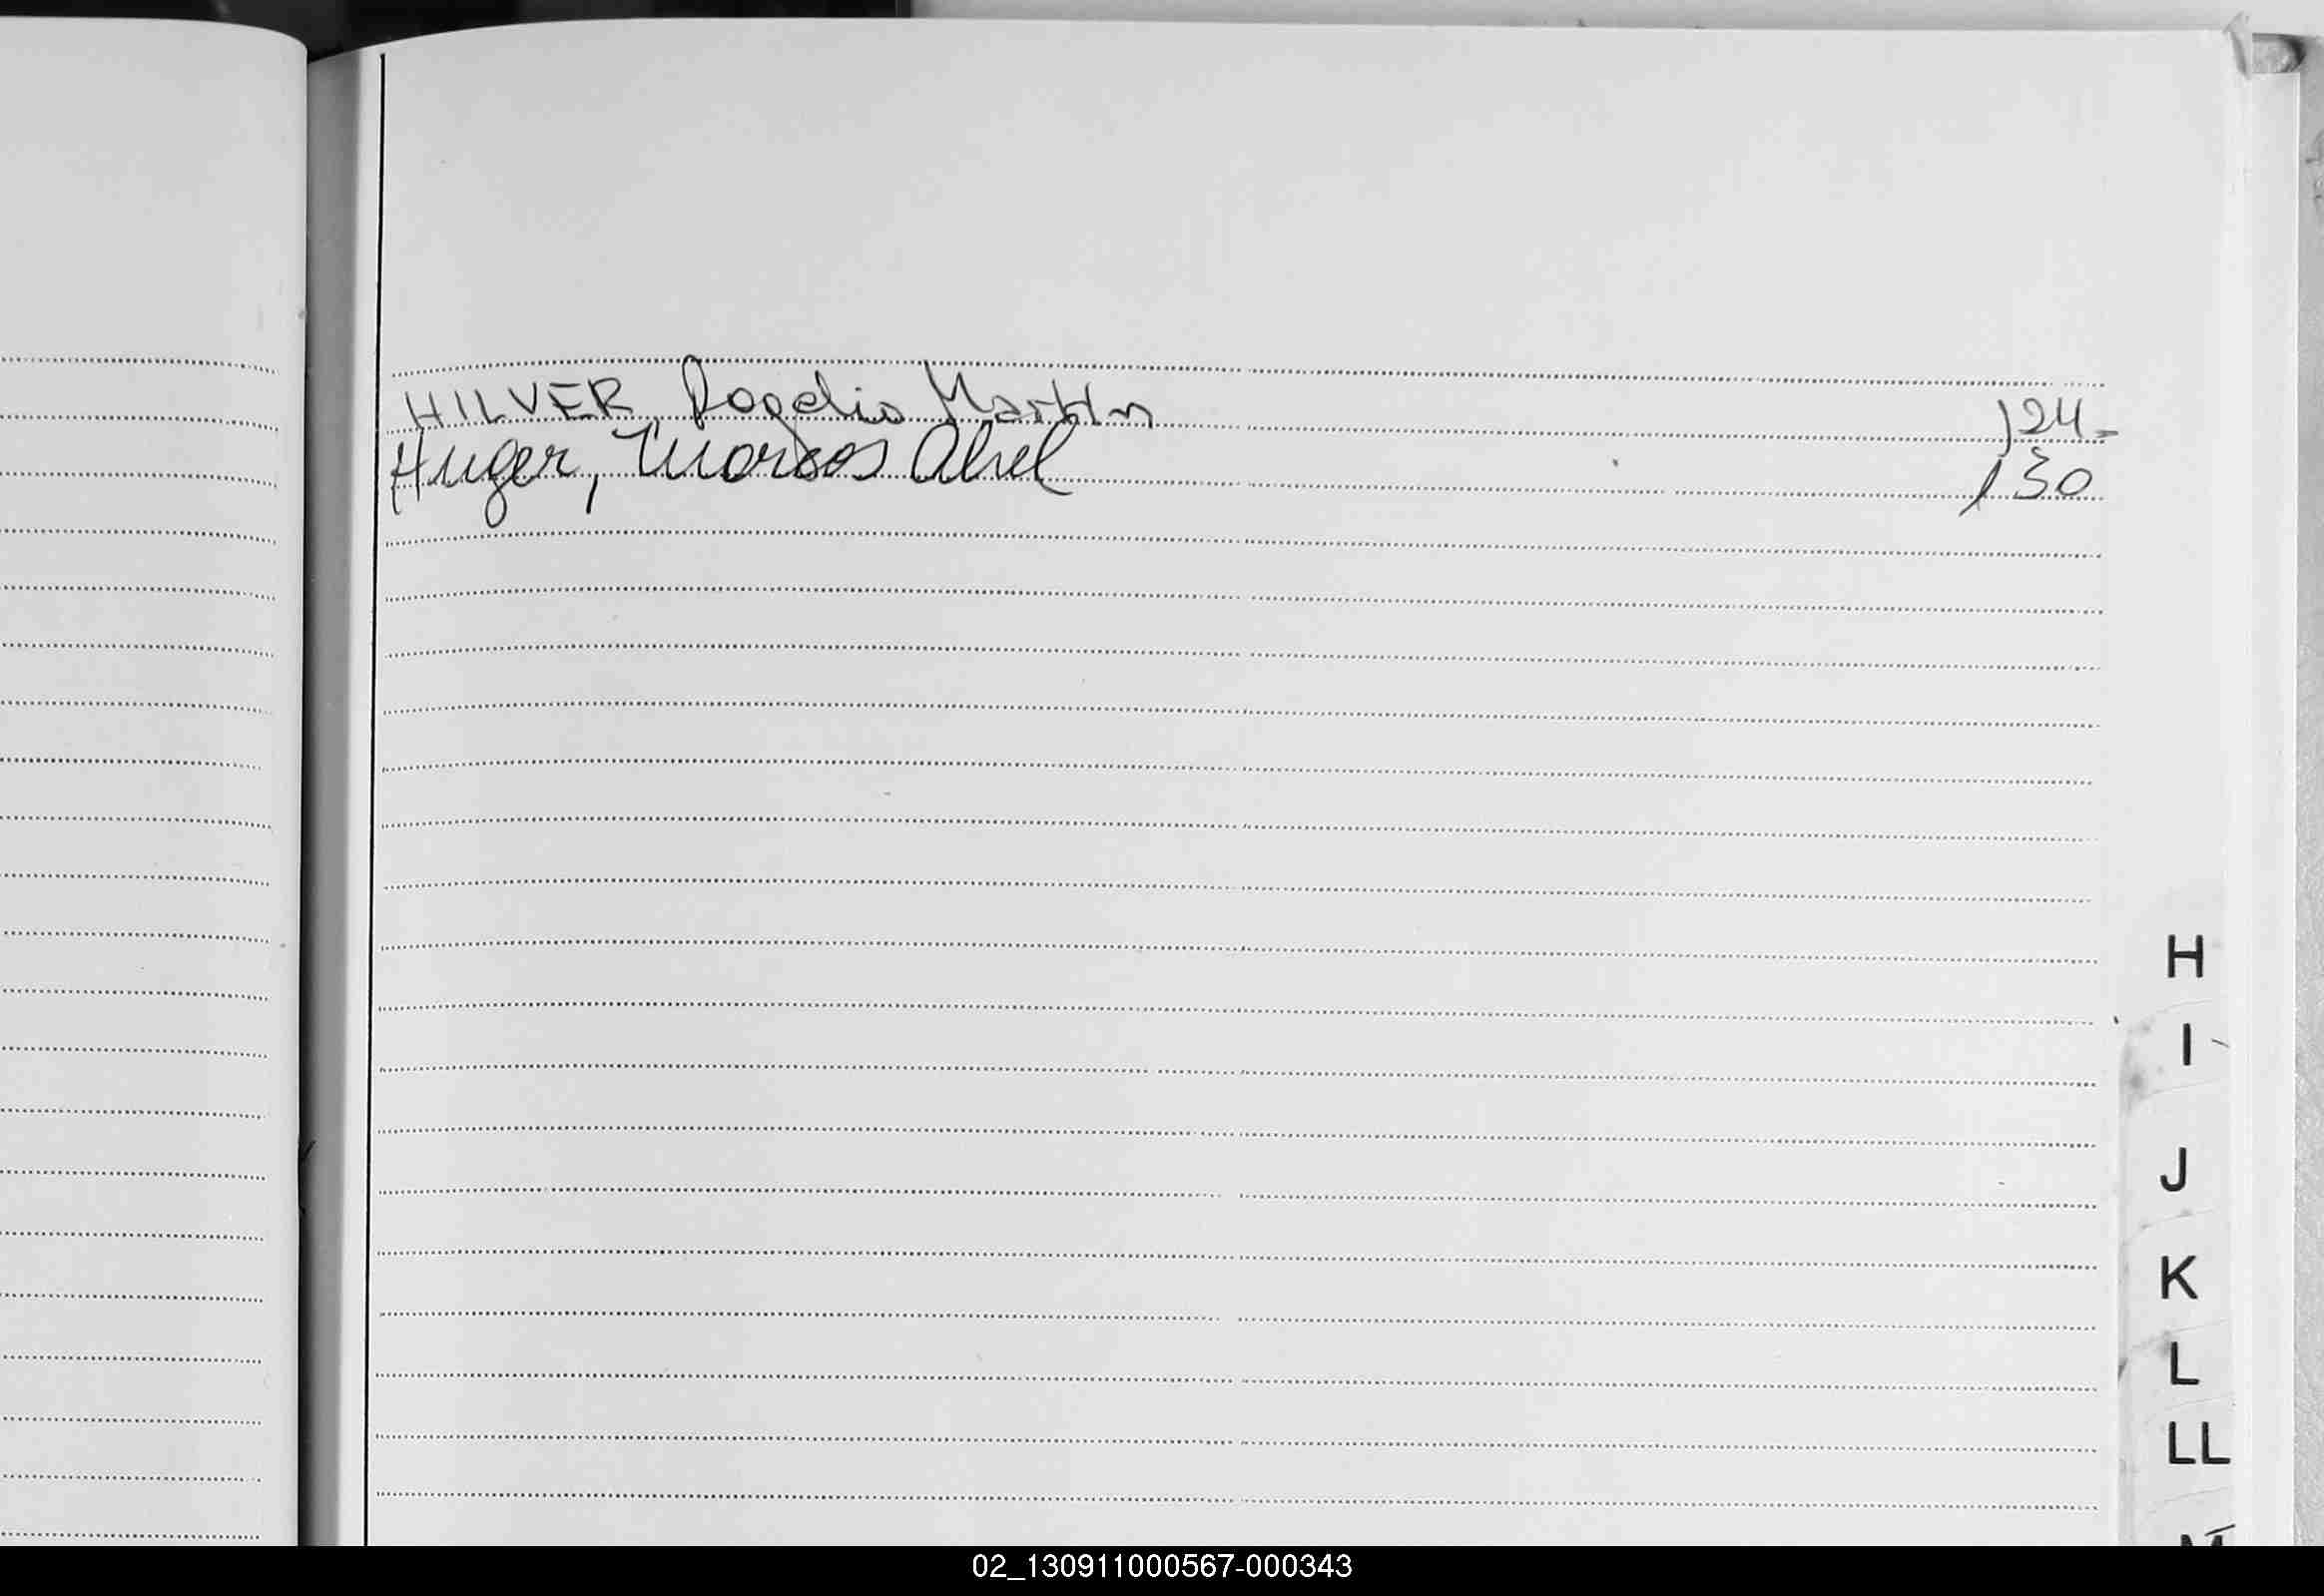 HILVER Rogelio Martín 124-
Huger, Marcos Abel 130
H
I
J
K
L
LL
M
02_130911000567-000343